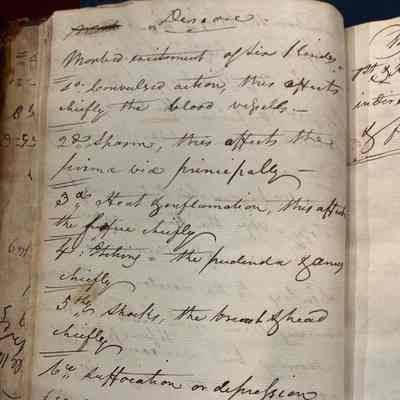 Disease
Morbid excitement of six kinds
1o. Convulsed action, this affects
chiefly the blood vessels.—
2d. Spasm, this affects the
primæ viæ principally —
3d. Heat & inflamation, this affects
the chiefly
4. Itching = the pudenda & anus
chiefly
5th. Shocks, the breast & head
chiefly
6th. Suffocation or depression